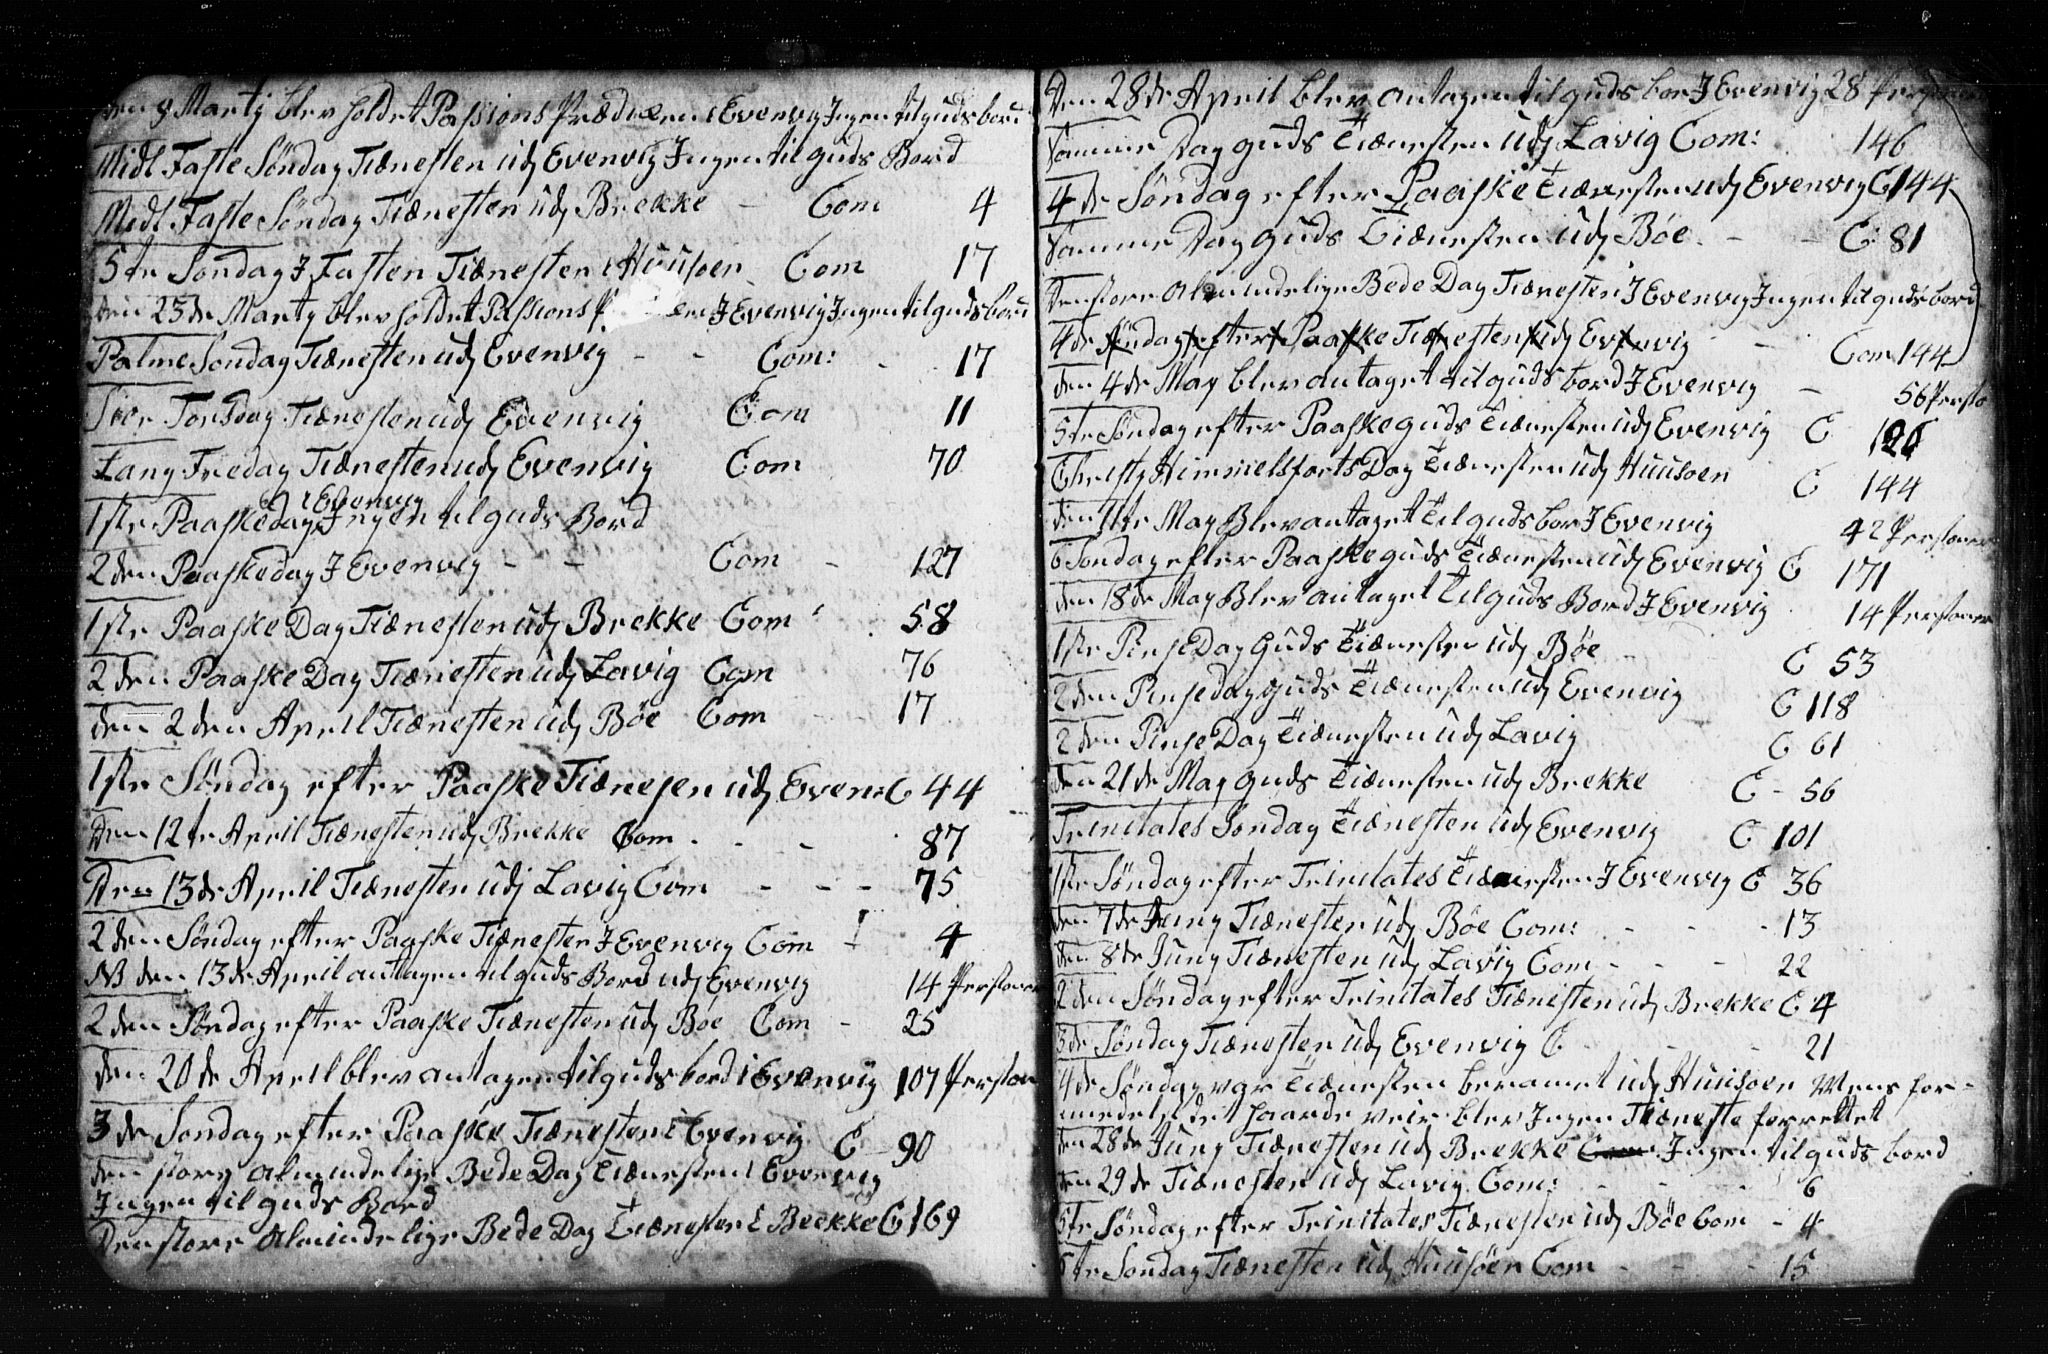 den 9 Martÿ blev holdet Passions Prædicken i Evenvig Ingen til guds bord
Midl Faste Søndag Tiænesten udj Evenvig Ingen til guds Bord
Midl Faste Søndag Tiænesten udj Brekke - Com 4
5te Søndag J Fasten Tiænesten i Huusøen Com 17
den 23de Martÿ blev holdet Passions P en J Evenvig Ingen til guds bord
Palme Søndag Tiænesten udj Evenvig - - Com: - 17
Skier Torsdag Tiænesten udj Evenvig Com 11
Lang Fredag Tiænesten udj Evenvig Com 70
i Evenvig
1ste Paaskedag Ingen til guds Bord
2den Paaskedag J Evenvig - - Com - 127
1ste Paaske Dag Tiænesten udj Brekke Com: 58
2den Paaske Dag Tiænesten udj Lavig Com 76
den 2den April Tiænesten udj Bøe Com - - 17
1ste Søndag efter Paaske Tiænesen udj Even: C 44
Den 12te April Tiænesten udj Brekke Com - - - 87
Den 13de April Tiænesten udj Lavig Com - - - 75
2den Søndag efter Paaske Tiænesten J Evenvig Com 4
NB den 13de April antagen til guds Bord udj Evenvig 14 Persloner
2den Søndag efter Paaske Tiænesten udj Bøe Com - 25
den 20de April blev antagen til guds bord i Evenvig 107 Perslon
3de Søndag efter Paaske Tiænesten i Evenvig C - 90
den store almindelige Bede Dag Tiænesten i Evenvig
Ingen til guds Bord
Den store almindelige Bede Dag Tiænesten i Brekke C 169
Den 28de April blev antagen til guds bor J Evenvig 28 Personer
Samme Dag guds Tiænesten udj Lavig Com: 146
4de Søndag efter Paaske Tiænesten udj Evenvig C 144
Samme Dag guds Tiænesten udj Bøe - - C 81
Den store almindelige Bede Dag Tiænesten J Evenvig Ingen til guds bord
4de Søndag efter Paaske Tiænesten udj Evenvig - Com 144
den 4de May blev antaget til guds bord J Evenvig - 56 Perslo
5te Søndag efter Paaske guds Tiænesten udj Evenvig C 126
Christÿ Himmelsfarts Dag Tiænesten udj Huusøen C 144
den 11te May Blev antaget til guds bor J Evenvig 42 Persloner
6 Søndag efter Paaske guds Tiænesten udj Evenvig C 171
den 18de May Blev antaget til guds Bord J Evenvig 14 Persloner
1ste Pinse Dag guds Tiænesten udj Bøe - - C 53
2den Pinsedag guds Tiænesten udj Evenvig C 118
2den Pinse Dag Tiænesten udj Lavig C 61
den 21de May guds Tiænesten udj Brekke C - 56
Trinitates Søndag Tiænesten udj Evenvig C 101
1ste Søndag efter Trinitates Tiænesten J Evenvig C 36
den 7de Juny Tiænesten udj Bøe Com: - - - 13
den 8de Juny Tiænesten udj Lavig Com - - - 22
2den Søndag efter Trinitates Tiænesten udj Brekke C 4
3de Søndag Tiænesten udj Evenvig C - - - 21
4de Søndag var Tiænesten beramet udj Huusøen Mens for-
medelst det haarde veir blev Ingen Tiæneste forrettet
den 28de Juny Tiænesten udj Brekke Com Ingen til guds bord
den 29de Tiænesten udj Lavig Com: - - - 6
5te Søndag efter Trinitates Tiænesten udj Bøe Com - 4
6te Søndag Tiænesten udj Huusøen Com - - - 15